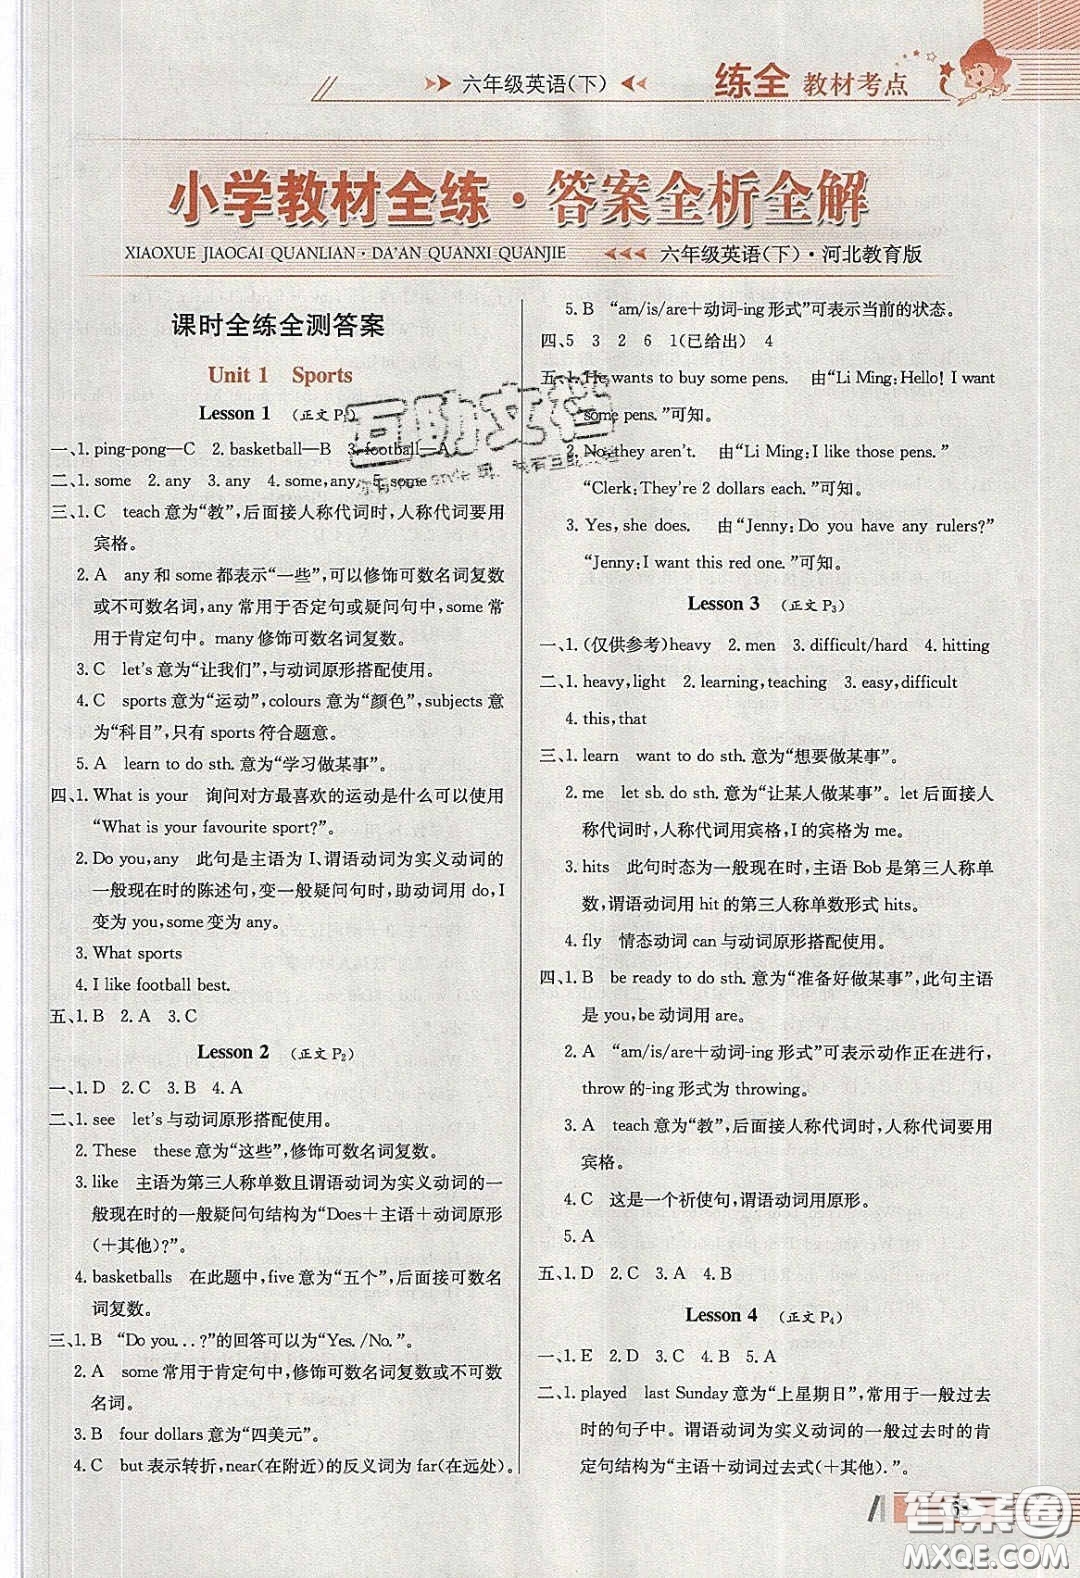 六年级英语(下)
练全 教材考点
小学教材全练·答案全析全解
XIAOXUE JIAOCAI QUANLIAN · DA'AN QUANXI QUANJIE
六年级英语(下)·河北教育版
课时全练全测答案
Unit 1 Sports
Lesson 1 (正文 P₁)
一、1. ping-pong—C 2. basketball—B 3. football—A
二、1. some 2. any 3. any 4. some,any 5. some
三、1. C teach 意为“教”,后面接人称代词时,人称代词要用
宾格。
2. A any 和 some 都表示“一些”,可以修饰可数名词复数
或不可数名词,any 常用于否定句或疑问句中,some 常
用于肯定句中。many 修饰可数名词复数。
3. C let's 意为“让我们”,与动词原形搭配使用。
4. C sports 意为“运动”,colours 意为“颜色”,subjects 意
为“科目”,只有 sports 符合题意。
5. A learn to do sth. 意为“学习做某事”。
四、1. What is your 询问对方最喜欢的运动是什么可以使用
“What is your favourite sport?”。
2. Do you,any 此句是主语为 I、谓语动词为实义动词的
一般现在时的陈述句,变一般疑问句时,助动词用 do,I
变为 you,some 变为 any。
3. What sports
4. I like football best.
五、1. B 2. A 3. C
Lesson 2 (正文 P₂)
一、1. D 2. C 3. B 4. A
二、1. see let's 与动词原形搭配使用。
2. These these 意为“这些”,修饰可数名词复数。
3. like 主语为第三人称单数且谓语动词为实义动词的一
般现在时的一般疑问句结构为“Does+主语+动词原形
(+其他)?”。
4. basketballs 在此题中,five 意为“五个”,后面接可数名
词复数。
三、1. B “Do you...?”的回答可以为“Yes./No.”。
2. A some 常用于肯定句中,修饰可数名词复数或不可数
名词。
3. B four dollars 意为“四美元”。
4. C but 表示转折,near(在附近)的反义词为 far(在远处)。
5. B “am/is/are+动词-ing 形式”可表示当前的状态。
四、5 3 2 6 1(已给出) 4
五、1. He wants to buy some pens. 由“Li Ming:Hello! I want
some pens.”可知。
2. No,they aren't. 由“Li Ming:I like those pens.”
“Clerk:They're 2 dollars each.”可知。
3. Yes,she does. 由“Jenny:Do you have any rulers?”
“Jenny:I want this red one.”可知。
Lesson 3 (正文 P₃)
一、1. (仅供参考)heavy 2. men 3. difficult/hard 4. hitting
二、1. heavy,light 2. learning,teaching 3. easy,difficult
4. this,that
三、1. learn want to do sth. 意为“想要做某事”。
2. me let sb. do sth. 意为“让某人做某事”。let 后面接人
称代词时,人称代词用宾格,I 的宾格为 me。
3. hits 此句时态为一般现在时,主语 Bob 是第三人称单
数,谓语动词用 hit 的第三人称单数形式 hits。
4. fly 情态动词 can 与动词原形搭配使用。
四、1. B be ready to do sth. 意为“准备好做某事”,此句主语
是 you,be 动词用 are。
2. A “am/is/are+动词-ing 形式”可表示动作正在进行,
throw 的-ing 形式为 throwing。
3. A teach 意为“教”,后面接人称代词时,人称代词要用
宾格。
4. C 这是一个祈使句,谓语动词用原形。
5. A
五、1. D 2. C 3. A 4. B
Lesson 4 (正文 P₄)
一、1. E 2. D 3. C 4. B 5. A
二、1. played last Sunday 意为“上星期日”,常用于一般过去
时的句子中。谓语动词为实义动词的一般过去时的肯
定句结构为“主语+动词过去式(+其他).”。
互助文档
答案圈
MXQE.COM